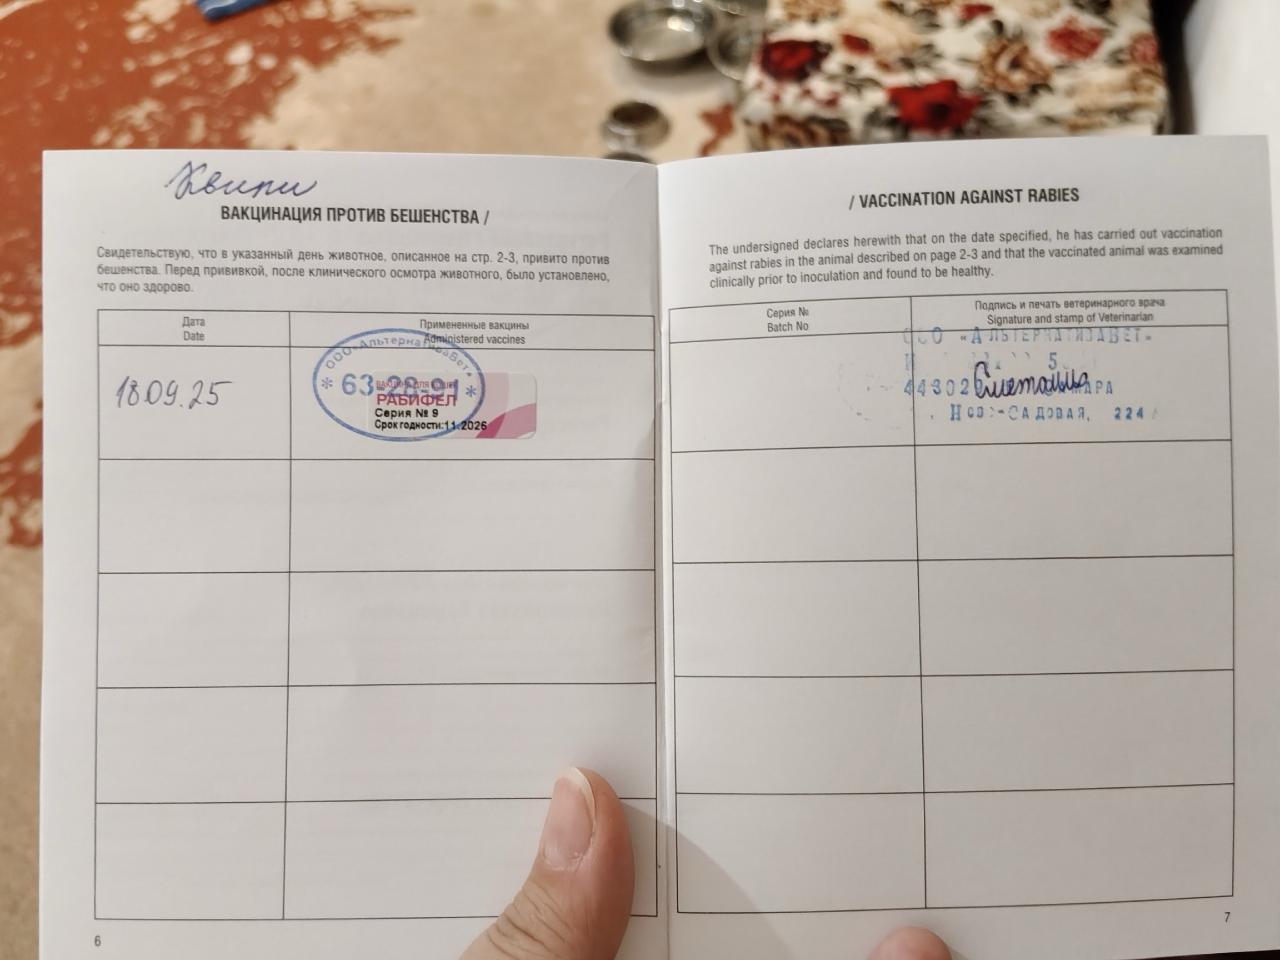 Квипи
ВАКЦИНАЦИЯ ПРОТИВ БЕШЕНСТВА /
Свидетельствую, что в указанный день животное, описанное на стр. 2-3, привито против
бешенства. Перед прививкой, после клинического осмотра животного, было установлено,
что оно здорово.
Дата
Date
Примененные вакцины
Administered vaccines
18.09.25
ООО «АльтернативаВет»
63-28-91
ВАКЦИНА ДЛЯ КОШЕК
РАБИФЕЛ
Серия № 9
Срок годности:11.2026
6
/ VACCINATION AGAINST RABIES
The undersigned declares herewith that on the date specified, he has carried out vaccination
against rabies in the animal described on page 2-3 and that the vaccinated animal was examined
clinically prior to inoculation and found to be healthy.
Серия №
Batch No
Подпись и печать ветеринарного врача
Signature and stamp of Veterinarian
ООО «АЛЬТЕРНАТИВАВЕТ»
Сметанина
224
7